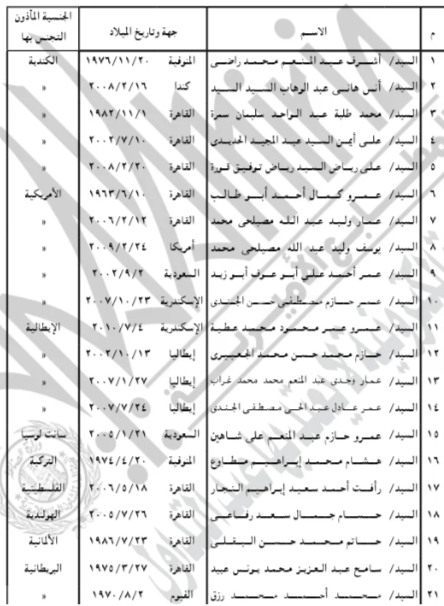 م الاسم جهة وتاريخ الميلاد الجنسية المأذون التجنس بها
١ السيد/ أشرف عبد المنعم محمد راضى المنوفية ١٩٧٦/١١/٢٠ الكندية
٢ السيد/ أنس هانى عبد الوهاب السيد السيد كندا ٢٠٠٨/٢/١٦ »
٣ السيد/ محمد طلبة عبد الواحد سليمان سمرة القاهرة ١٩٨٢/١١/١ »
٤ السيد/ على أيمن السيد عبد المجيد الحديدى القاهرة ٢٠٠٢/٧/١٠ »
٥ السيد/ على رياض السيد رياض توفيق قورة القاهرة ٢٠٠٨/٢/٢٠ »
٦ السيد/ عمرو كمال أحمد أبو طالب القاهرة ١٩٦٣/٦/١٠ الأمريكية
٧ السيد/ عمار وليد عبد الله مصيلحى محمد القاهرة ٢٠٠٦/٢/١٢ »
٨ السيد/ يوسف وليد عبد الله مصيلحى محمد أمريكا ٢٠٠٩/٢/٢٤ »
٩ السيد/ عمر أحمد على أبو عوف أبو زيد السعودية ٢٠٠٢/٩/٢ »
١٠ السيد/ عمر حازم مصطفى حسن الجندى الإسكندرية ٢٠٠٧/١٠/٢٣ »
١١ السيد/ عمرو عمر محمود محمد عطية الإسكندرية ٢٠١٠/٧/٤ الإيطالية
١٢ السيد/ حازم محمد حسن محمد الجعبيرى إيطاليا ٢٠٠٢/١٠/١٣ »
١٣ السيد/ عمار وجدى عبد المنعم محمد محمد غراب إيطاليا ٢٠٠٧/١/٢٧ »
١٤ السيد/ عمر عادل عبد الحى مصطفى الجندى إيطاليا ٢٠٠٧/٧/٢٤ »
١٥ السيد/ عمرو حازم عبد المنعم على شاهين السعودية ٢٠٠٥/١/٣١ سانت لوسيا
١٦ السيد/ هشام محمد إبراهيم مطاوع المنوفية ١٩٧٤/٤/٢٠ التركية
١٧ السيد/ رأفت أحمد سعيد إبراهيم النجار القاهرة ٢٠٠٦/٥/١٨ الفلسطينية
١٨ السيد/ حسام جمال سعد رفاعى القاهرة ٢٠٠٥/٧/٢٦ الهولندية
١٩ السيد/ حاتم محمد حسن البقلى القاهرة ١٩٨٦/٧/٢٣ الألمانية
٢٠ السيد/ سامح عبد العزيز محمد يونس عبيد القاهرة ١٩٧٥/٣/٢٧ البريطانية
٢١ السيد/ محمد أحمد محمد رزق الفيوم ١٩٧٠/٨/٢ »